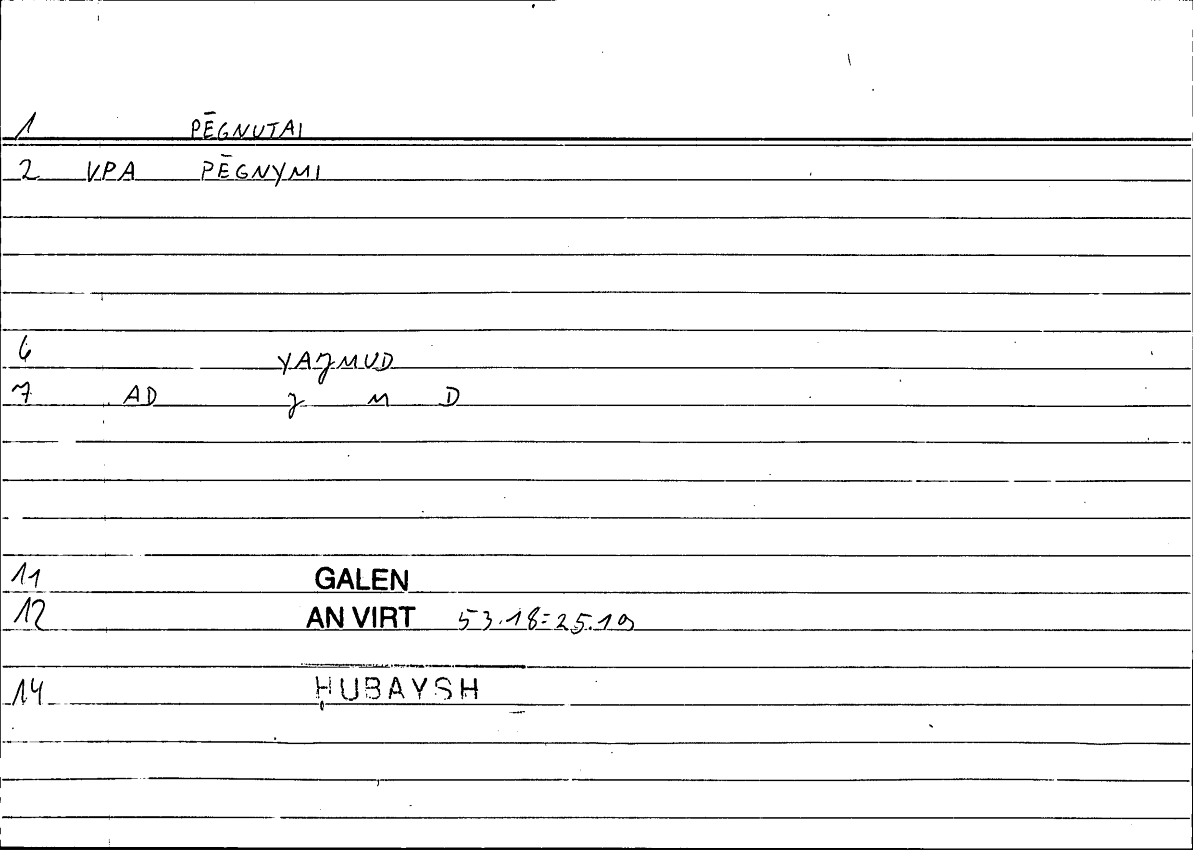 1 PĒGNUTAI
2 VPA PĒGNYMI
6 YAJMUD
7 AD J M D
11 GALEN
12 AN VIRT 53.18=25.19
14 ḤUBAYSH